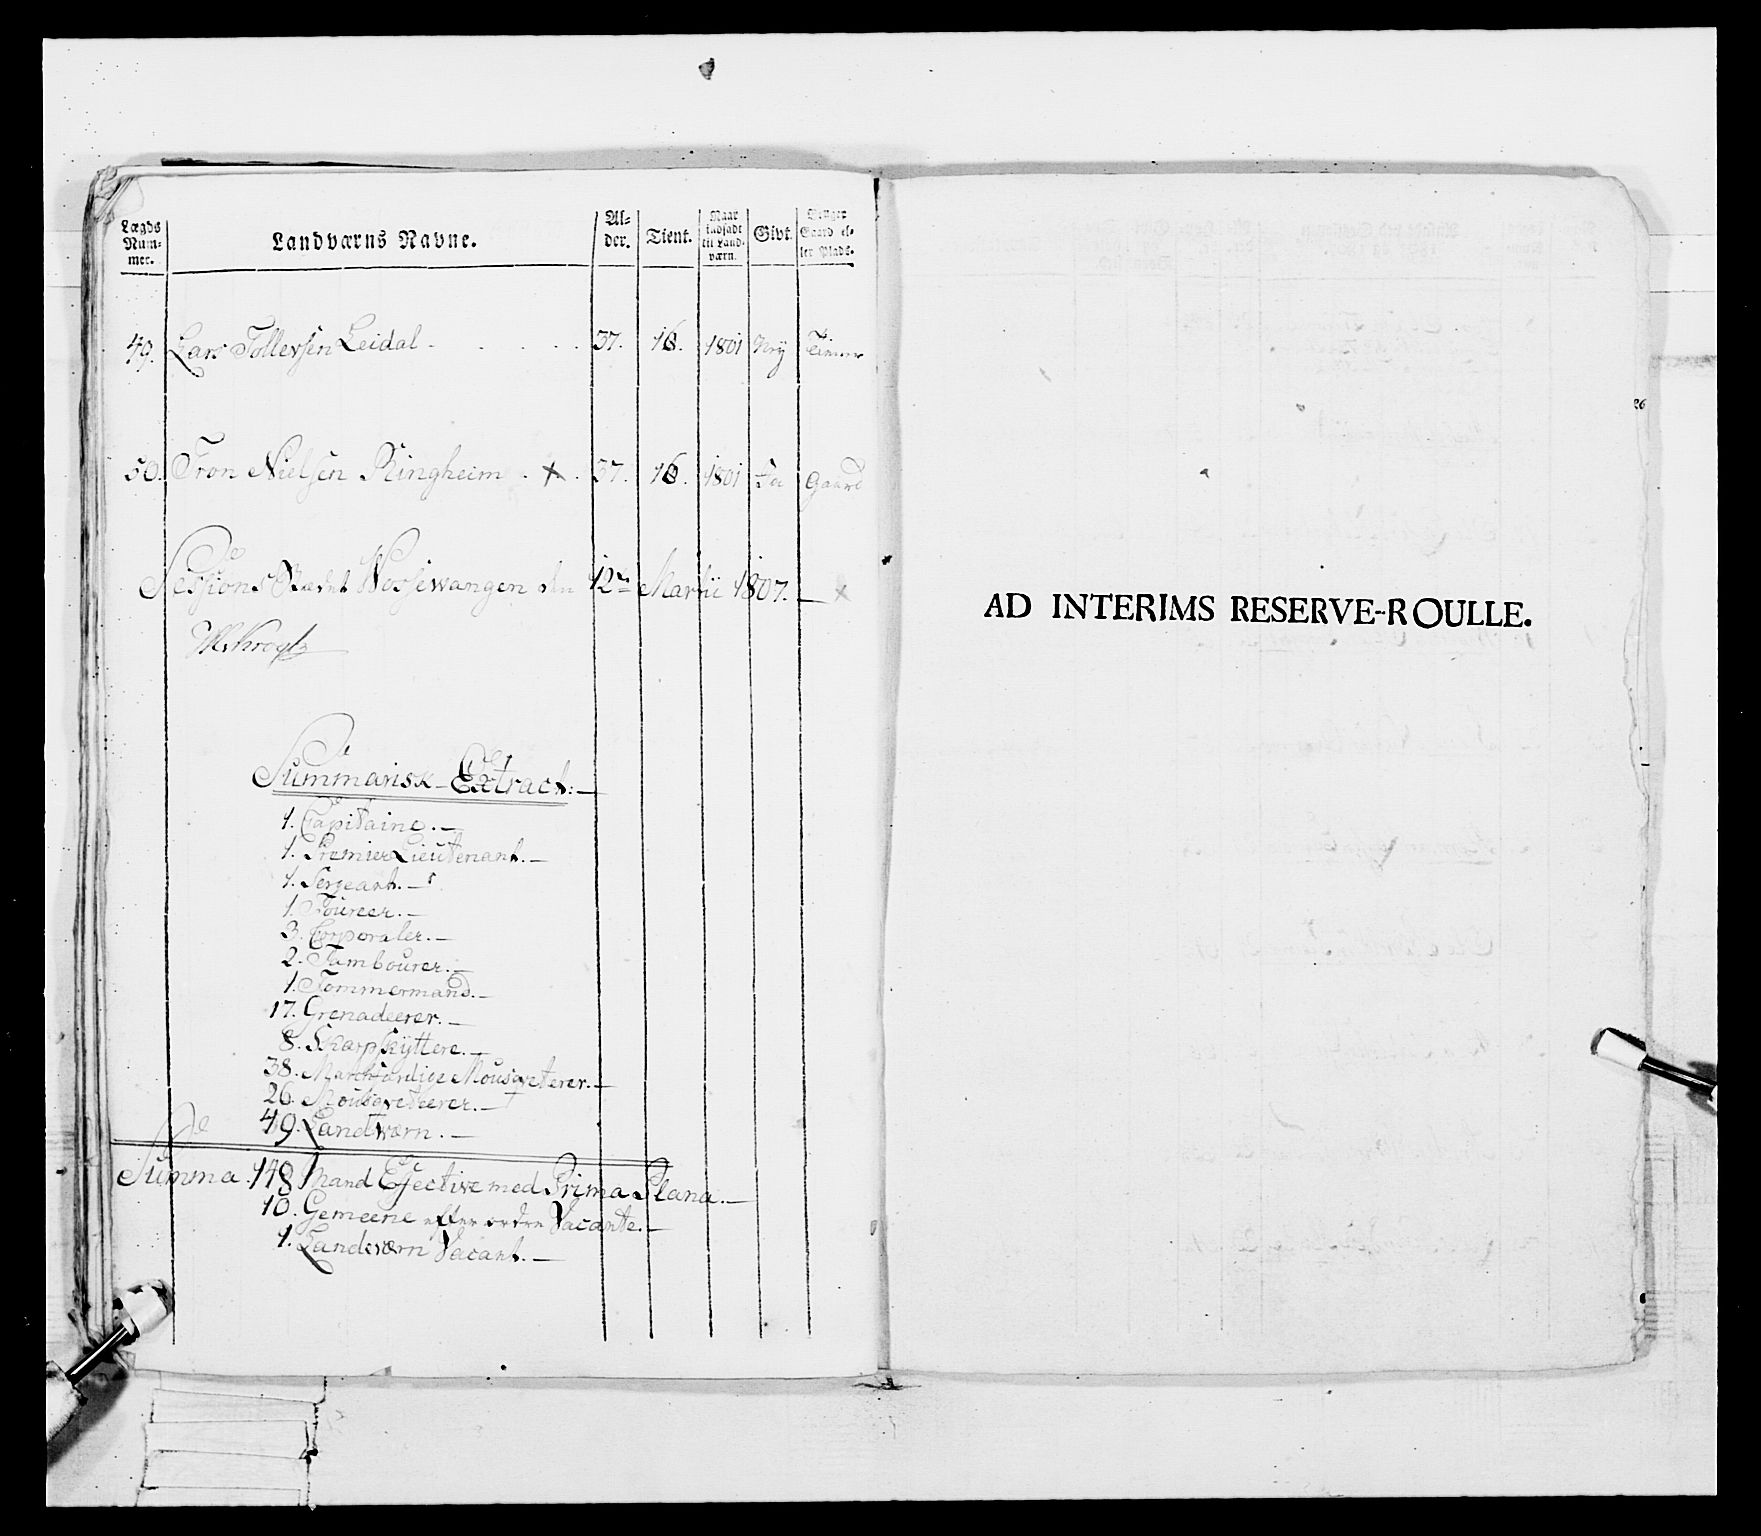 Lægds Num- mer. Landværns Navne. Al- der. Tient. Naar indsadt til Land- værn. Givt. Gaard el- ler Plads.
49. Lars Tollevsen Leidal . . . . . 37. 16. 1801 Nej
50. Tron Nielsen Ringheim . x . 37. 16. 1801 Ja Gaard
Sessions Stædet Wossewangen den 12te Martii 1807. —
Summarisk Extract: —
1. Capitaine. —
1. Premier Lieutenant. —
1. Sergeant. —
1. Foureer. —
3. Corporaler. —
2. Tambourer. —
1. Tømmermand. —
17. Grenadeerer. —
8. Skarpskyttere. —
38. Marchfærdige Mousqveterer. —
26. Mousqveteerer. —
49. Landtværn. —
Summa. 148 Mand Efective med Prima Plana. —
10. Gemeene efter ordre Vacante. —
1. Landværn Vacant. —
AD INTERIMS RESERVE-ROULLE.